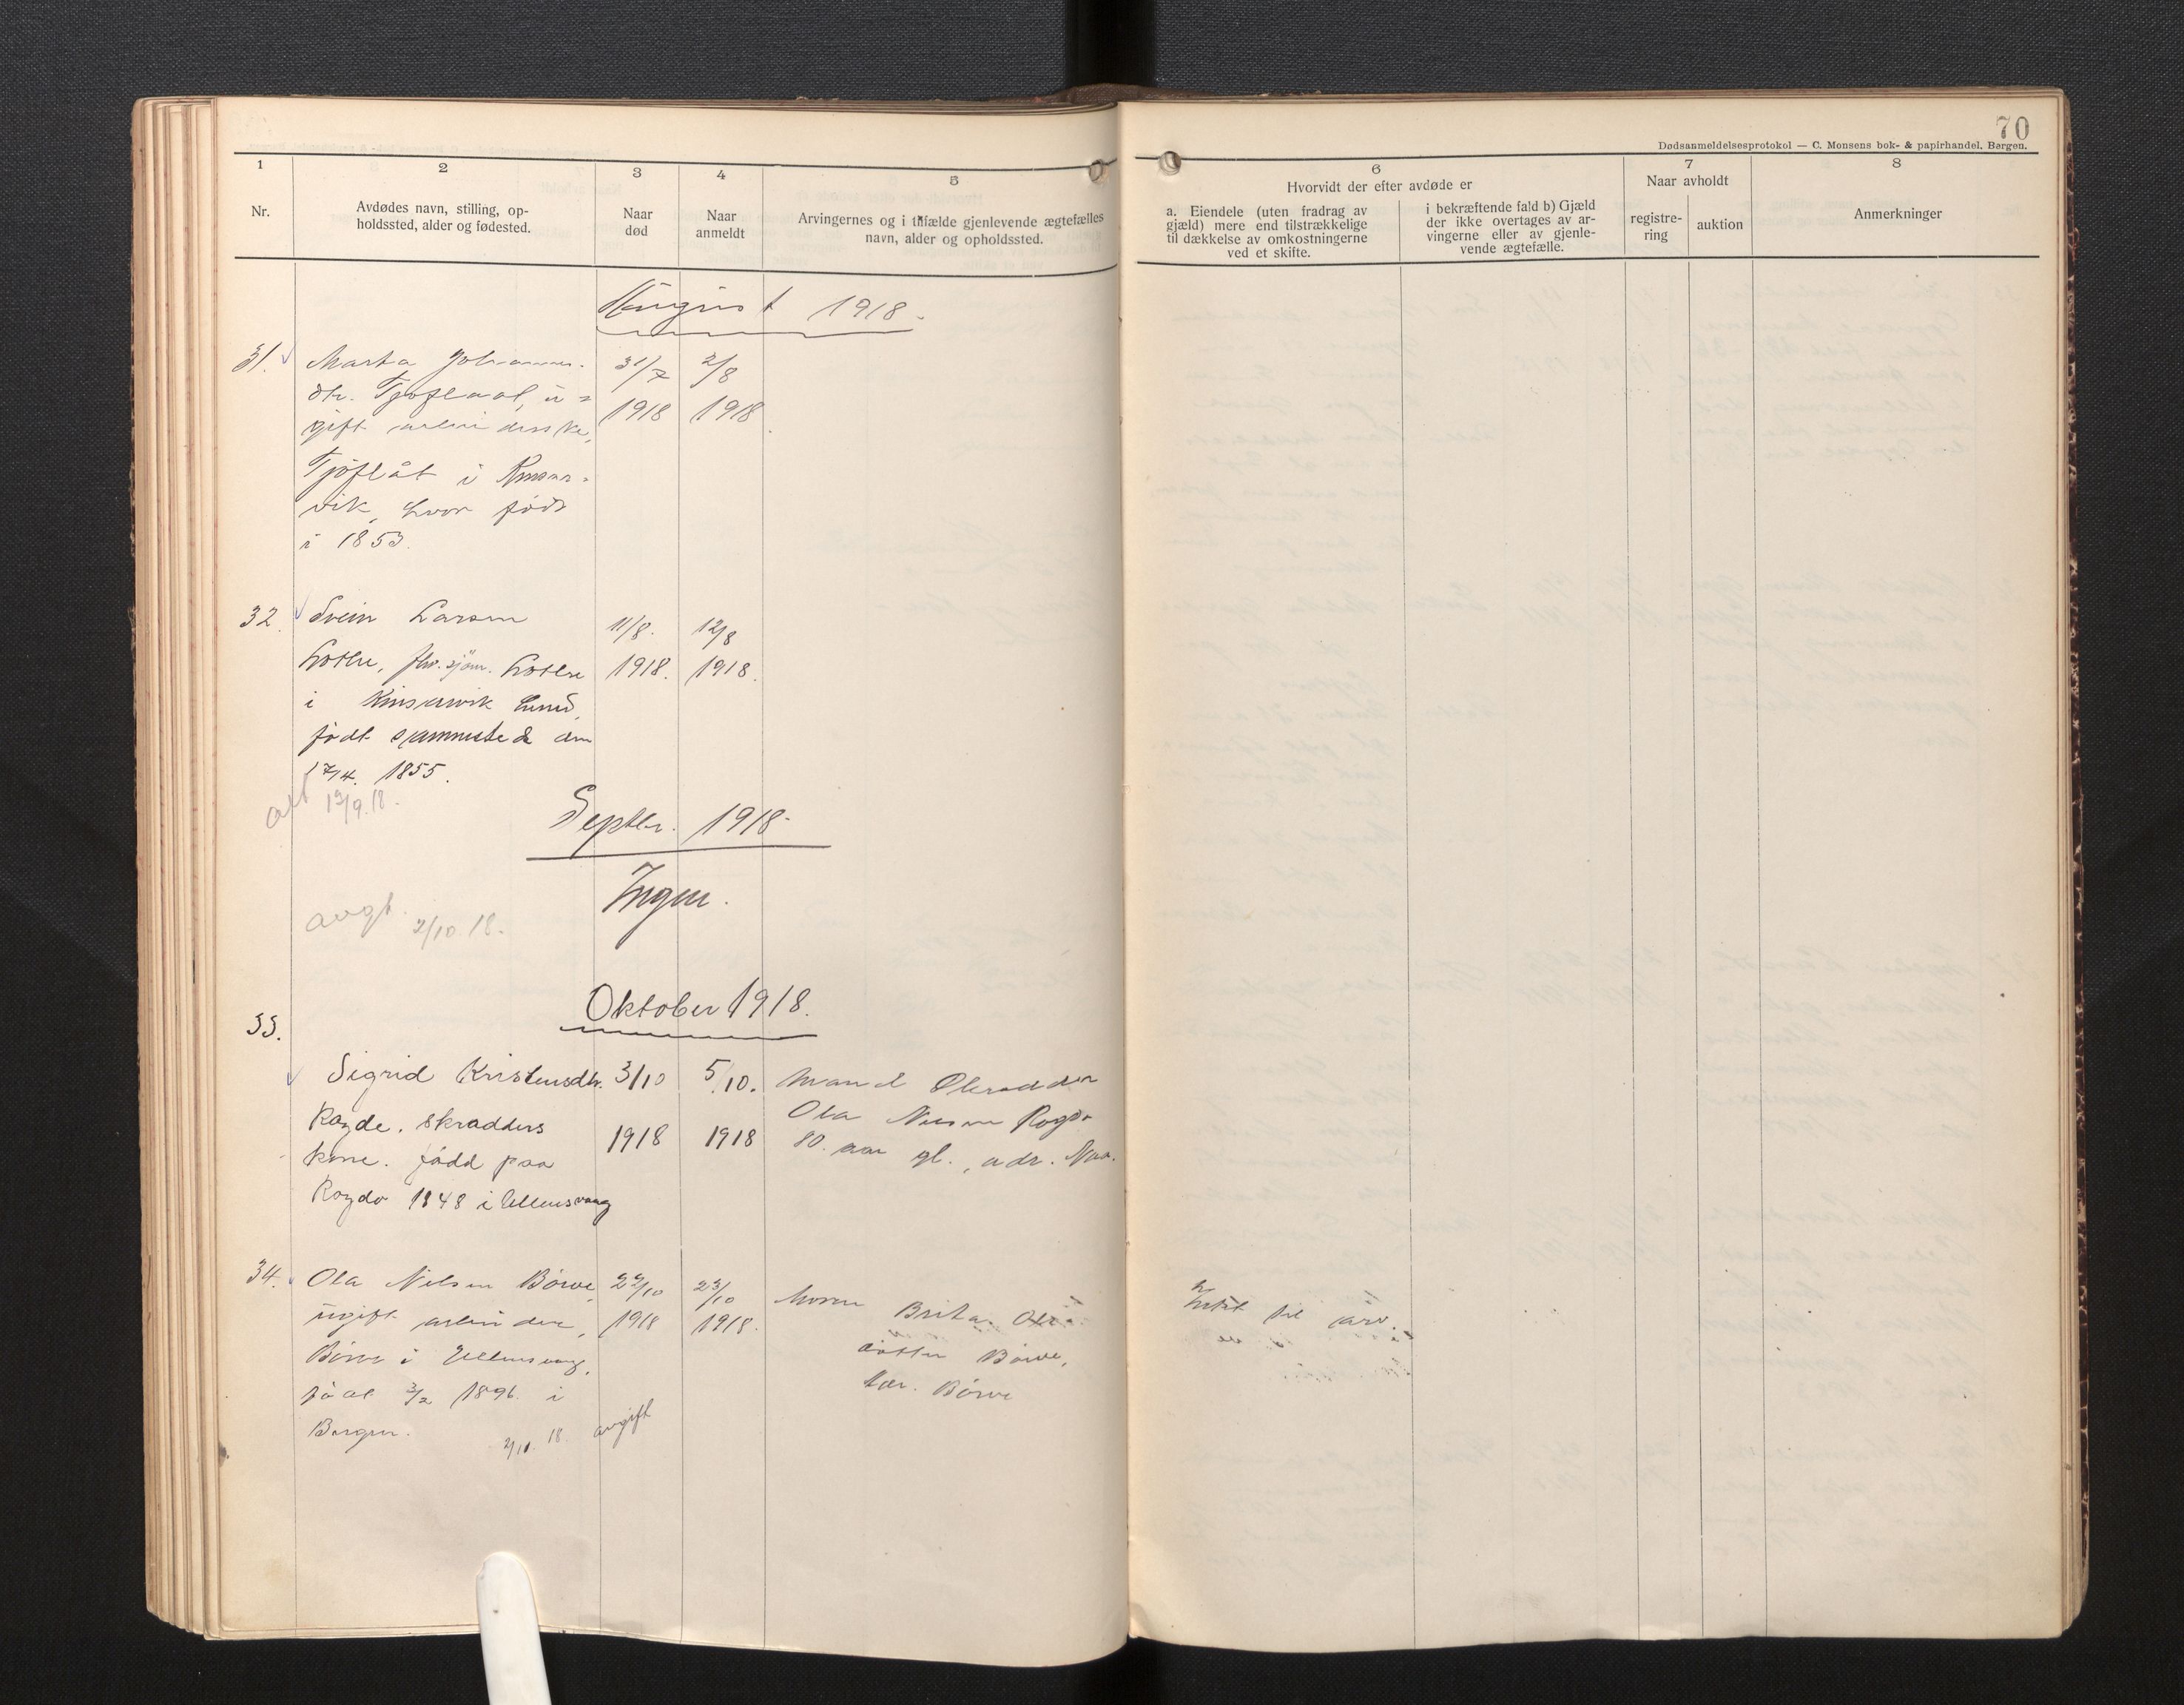 70
Dødsanmeldelsesprotokol — C. Monsens bok- & papirhandel. Bergen.
1 2 3 4 5 6 7 8
Nr.
Avdødes navn, stilling, op-
holdssted, alder og fødested.
Naar
død
Naar
anmeldt
Arvingernes og i tilfælde gjenlevende ægtefælles
navn, alder og opholdssted.
Hvorvidt der efter avdøde er
a. Eiendele (uten fradrag av
gjæld) mere end tilstrækkelige
til dækkelse av omkostningerne
ved et skifte.
i bekræftende fald b) Gjæld
der ikke overtages av ar-
vingerne eller av gjenle-
vende ægtefælle.
Naar avholdt
registre-
ring
auktion
Anmerkninger
August 1918.
31. Marta Johannes- 31/7 2/8
dtr. Tjoflaat, u= 1918 1918
gift arbeiderske,
Tjoflåt i Kinsar-
vik, hvor født
i 1853.
32. Svein Larsen 11/8. 12/8
Lothe, fhv. sjöm. Lothe 1918. 1918.
i Kinsarvik
født sammesteds den
17/4. 1855.
13/9.18.
Septbr. 1918.
Ingen.
avgt. 2/10.18.
Oktober 1918.
33.
Sigrid Kristensdtr. 3/10 5/10. Mand
Ragde. skrædders 1918 1918 Ola Nilsen Ragde
kone. född paa 80. aar gl., adr.
Ragde 1848 i Ullensvang
34. Ola Nilsen Börve, 22/10 23/10 Moren Brita
ugift arbeider, 1918 1918. datter Börve,
Börve i Ullensvang, adr. Börve
född 3/2 1896. i
Bergen.
2/11. 18. avgift
Intet til arv.